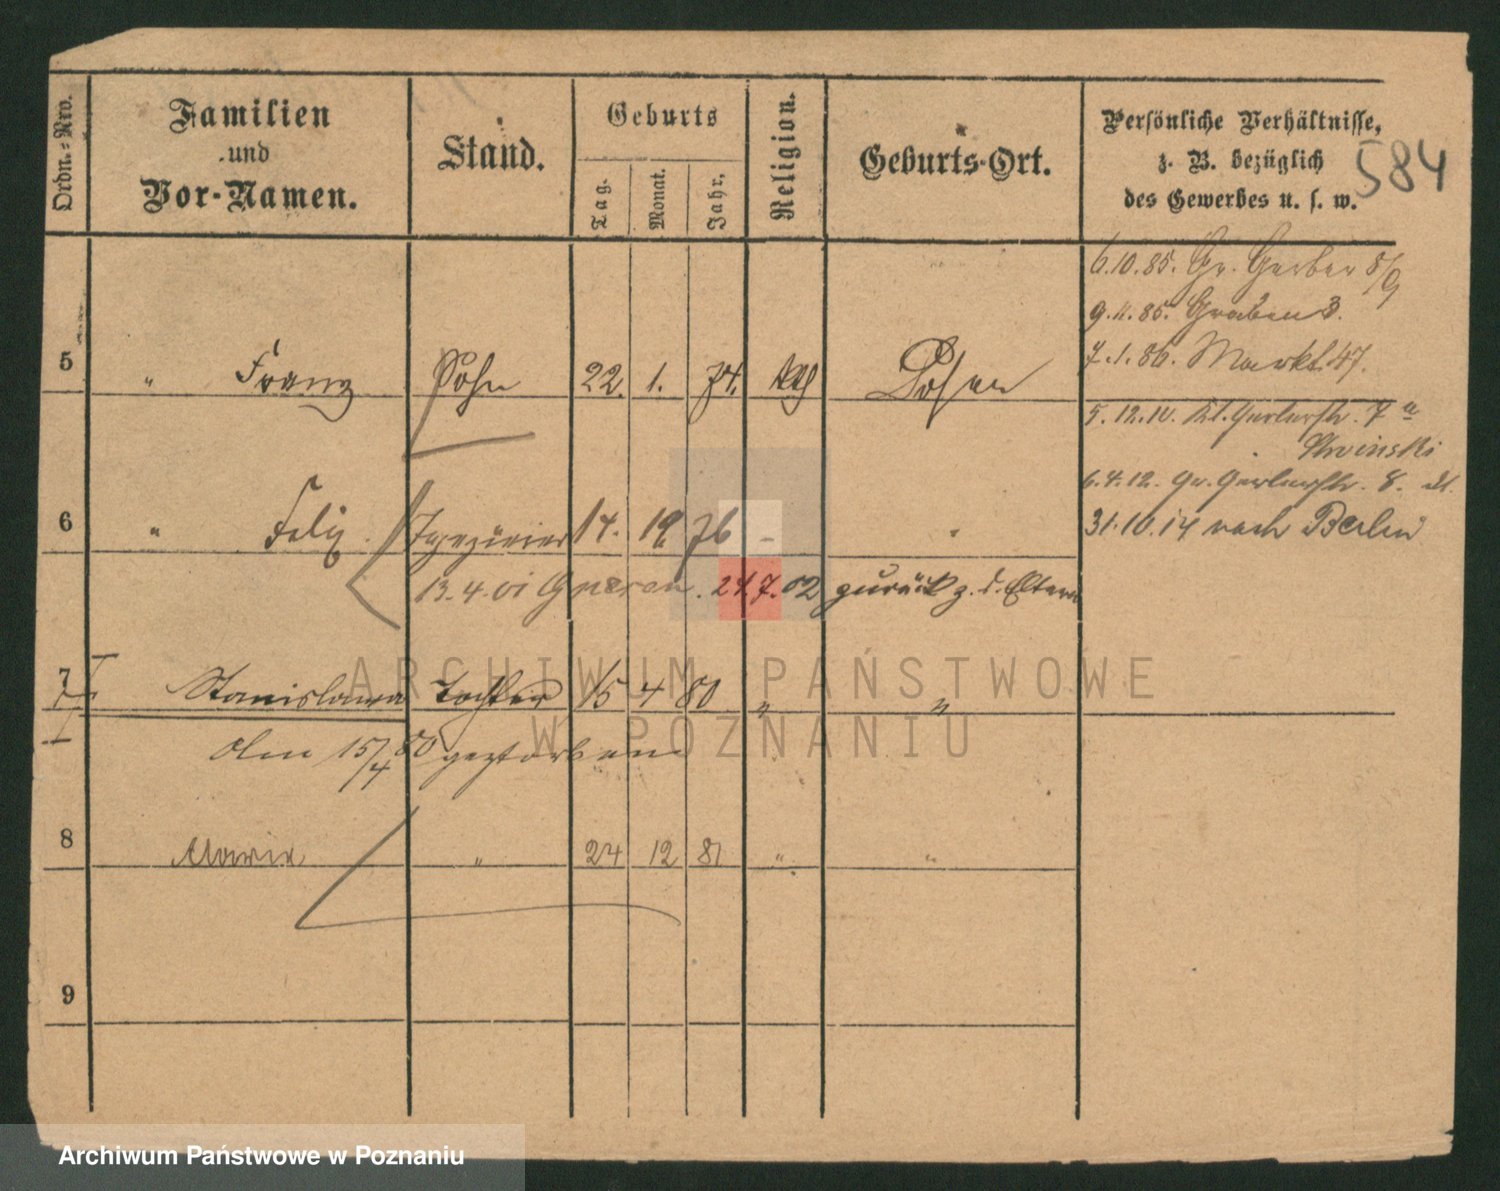 Ordn.=Nro.
Familien
und
Vor-Namen.
Stand.
Geburts
Tag.
Monat.
Jahr.
Religion.
Geburts-Ort.
Persönliche Verhältnisse,
z. B. bezüglich
des Gewerbes u. s. w.
584
6.10.85. Gr. Gerber 8/9
9.11.85. Graben 3.
7.1.86. Markt 47.
5 " Franz Sohn 22. 1. 74. kth Posen
5.12.10. Kl. Gerberstr. 7a
6.4.12. Gr. Gerberstr. 8.
31.10.14 nach Berlin
6 " Felix 14. 76 "
13.4.01 Gnesen. 24.7.02 zurück z. d. Eltern
7 Stanislawa Tochter 15 4 80 " "
Am 15/4 80 gestorben
8 Marie " 24 12 81 " "
9
ARCHIWUM PAŃSTWOWE
W POZNANIU
Archiwum Państwowe w Poznaniu